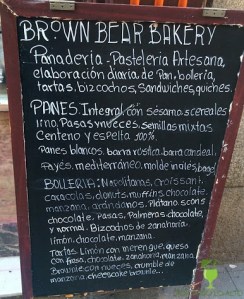 BROWN BEAR BAKERY
Panaderia-Pasteleria Artesana,
elaboración diaria de Pan, bolleria,
tartas, bizcochos, Sandwiches, quiches.
PANES: Integral con sésamo, 5 cereales
lino, Pasas y nueces, semillas mixtas
Centeno y espelta 100%
Panes blancos: barra rústica, barra candeal,
Payés, mediterránea, molde inglés, bagel
BOLLERIA: Napolitanas, Croissant
caracolas, donuts, muffins, chocolate,
manzana, arándanos, Plátano, scons
chocolate, Pasas, Palmeras chocolate,
y normal. Bizcochos de zanahoria,
limón, chocolate, manzana
Tartas. Limón con merengue, queso
con fresa, chocolate, zanahoria, manzana
Brownie con nueces, crumble de
manzana, cheesecake brownie...